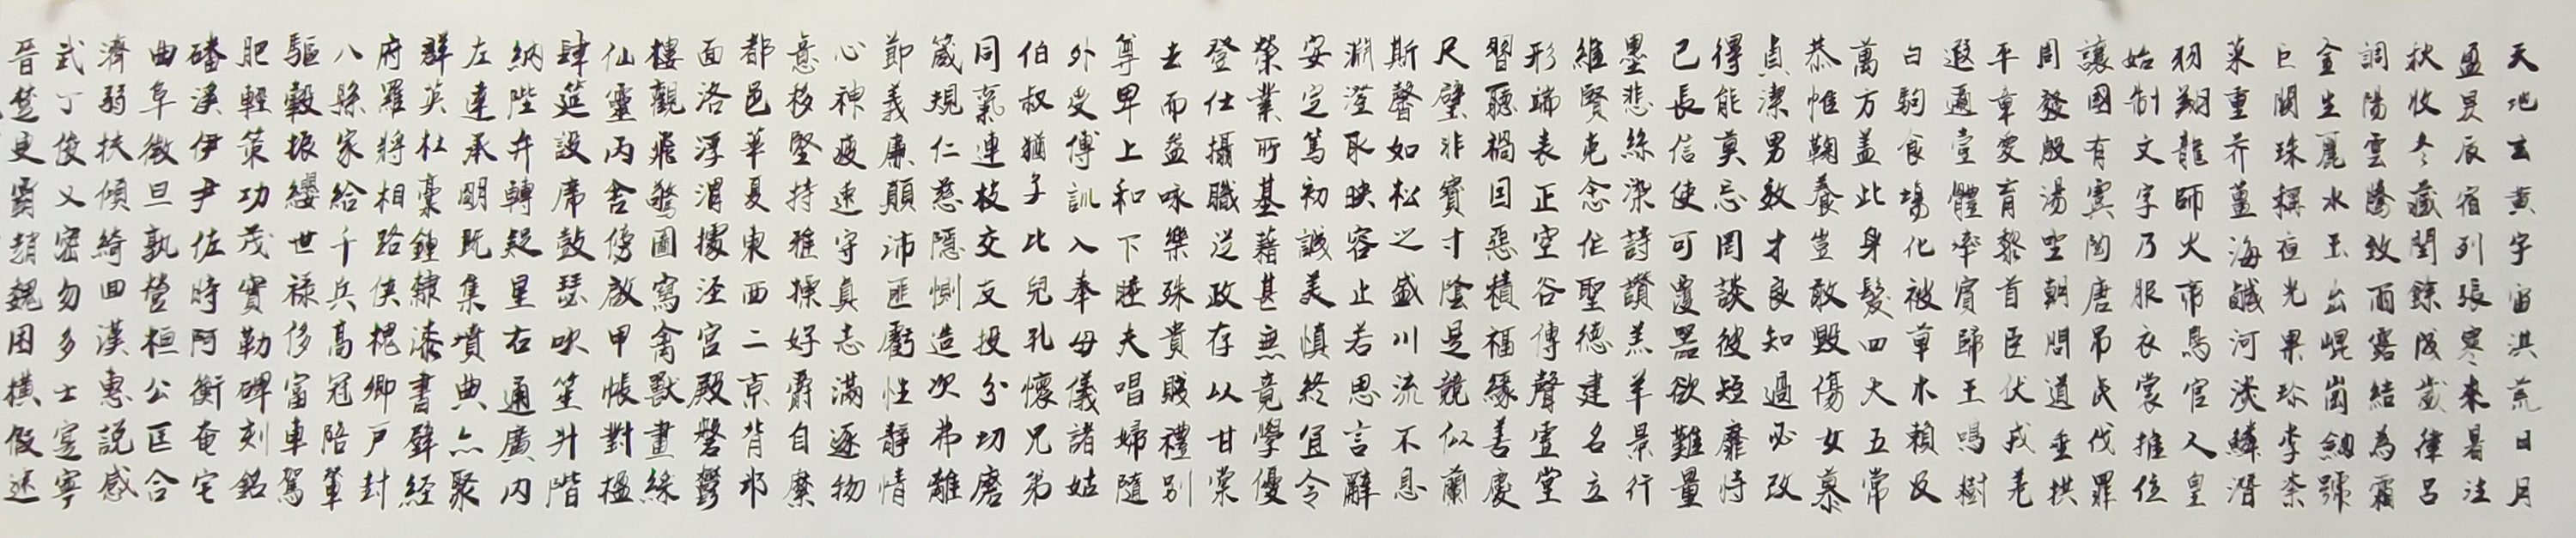 天地玄黃宇宙洪荒日月
盈昃辰宿列張寒來暑往
秋收冬藏閏餘成歲律呂
調陽雲騰致雨露結為霜
金生麗水玉出崐崗劍號
巨闕珠稱夜光果珍李柰
菜重芥薑海鹹河淡鱗潛
羽翔龍師火帝鳥官人皇
始制文字乃服衣裳推位
讓國有虞陶唐吊民伐罪
周發殷湯坐朝問道垂拱
平章愛育黎首臣伏戎羌
遐邇壹體率賓歸王鳴樹
白駒食場化被草木賴及
萬方蓋此身髮四大五常
恭惟鞠養豈敢毀傷女慕
貞潔男效才良知過必改
得能莫忘罔談彼短靡恃
己長信使可覆器欲難量
墨悲絲染詩讚羔羊景行
維賢克念作聖德建名立
形端表正空谷傳聲虛堂
習聽禍因惡積福緣善慶
尺璧非寶寸陰是競似蘭
斯馨如松之盛川流不息
淵澄取映容止若思言辭
安定篤初誠美慎終宜令
榮業所基藉甚無竟學優
登仕攝職從政存以甘棠
去而益咏樂殊貴賤禮別
尊卑上和下睦夫唱婦隨
外受傅訓入奉母儀諸姑
伯叔猶子比兒孔懷兄弟
同氣連枝交友投分切磨
箴規仁慈隱惻造次弗離
節義廉顛沛匪虧性靜情
心神疲守真志滿逐物
意移堅持雅操好爵自縻
都邑華夏東西二京背邙
面洛浮渭據涇宮殿磐鬱
樓觀飛驚圖寫禽獸畫綵
仙靈丙舍傍啟甲帳對楹
肆筵設席鼓瑟吹笙升階
納陛弁轉疑星右通廣內
左達承明既集墳典亦聚
群英杜稾鍾隸漆書壁經
府羅將相路俠槐卿戶封
八縣家給千兵高冠陪輦
驅轂振纓世祿侈富車駕
肥輕策功茂實勒碑刻銘
磻溪伊尹佐時阿衡奄宅
曲阜微旦孰營桓公匡合
濟弱扶傾綺回漢惠說感
武丁俊乂密勿多士寔寧
晉楚更霸趙魏困橫假途